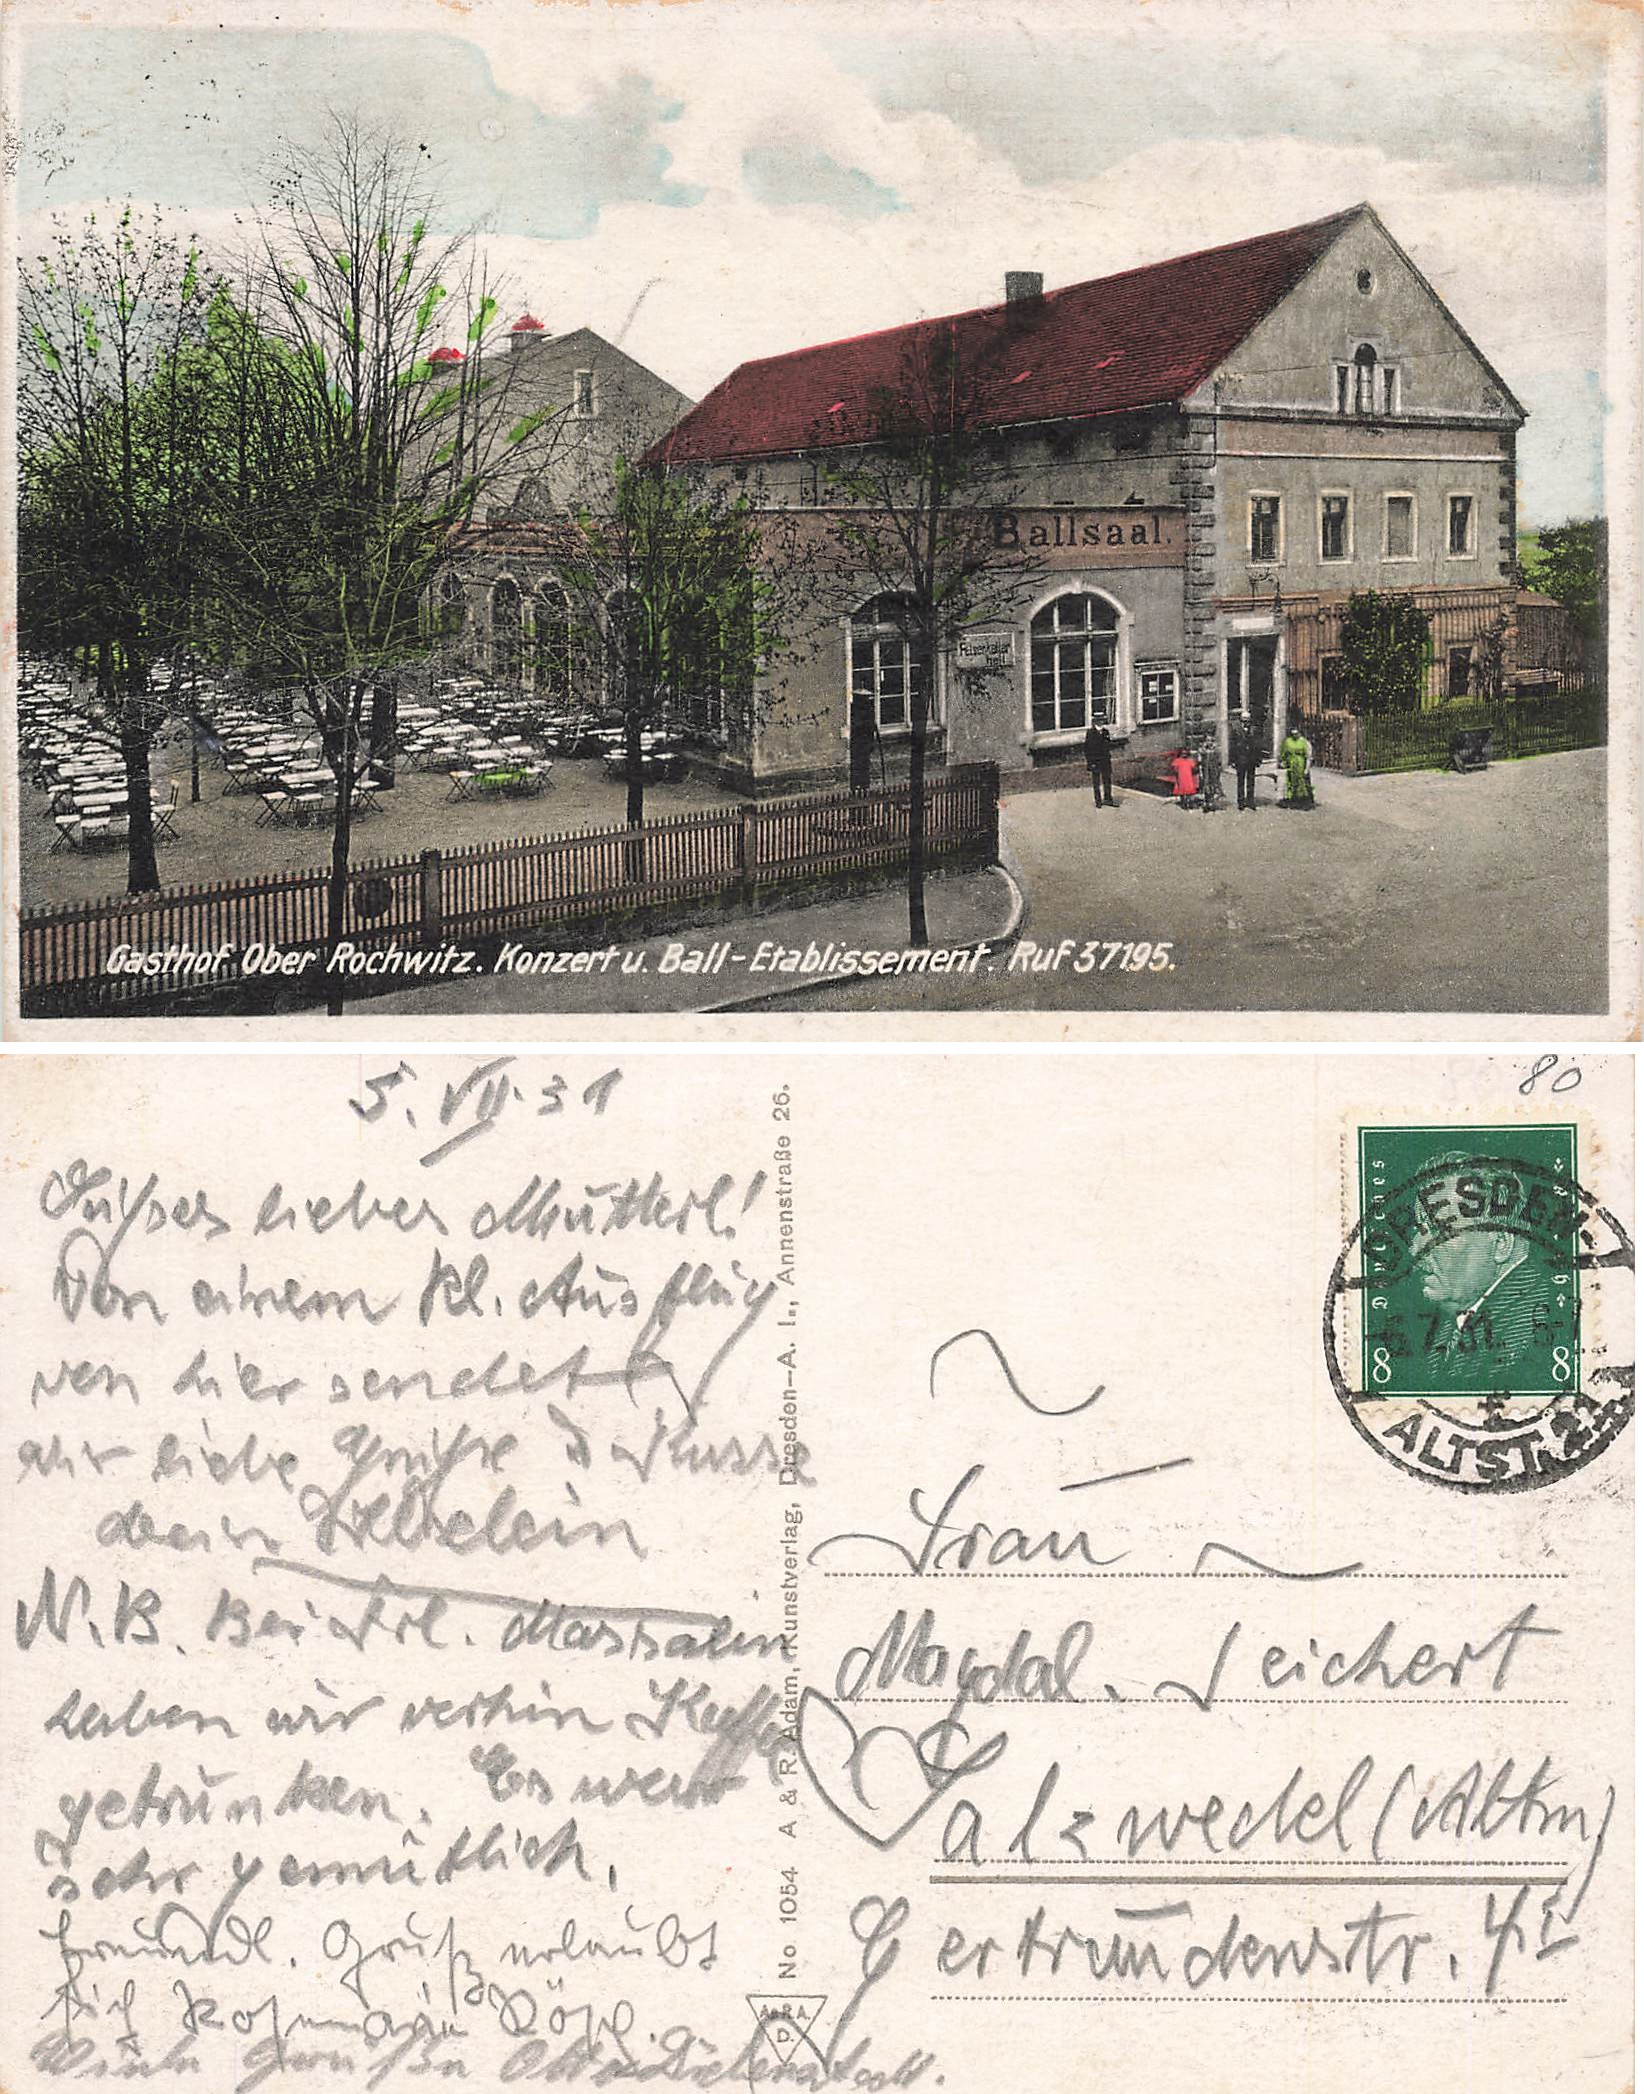 Ballsaal.
Felsenkeller
hell
Gasthof Ober Rochwitz. Konzert u. Ball-Etablissement. Ruf 37195.
5. VII. 31
80
Süßes liebes Mutterl!
Von einem kl. Ausflug
von hier sendet
dir liebe Grüße u Küsse
dein
N.B. Bei Frl.
haben wir vorhin Kaffe
getrunken. Es war
sehr gemütlich.
Freundl. Gruß erlaubt
sich
Grüße
No 1054 A & R. Adam, Kunstverlag, Dresden-A. I., Annenstraße 26.
A & R. A.
D.
Deutsches Reich
8 8
DRESDEN-
7.31.
ALTST. 24
Frau
Magdal. Seichert
Salzwedel (Altm)
Gertraudenstr. 4